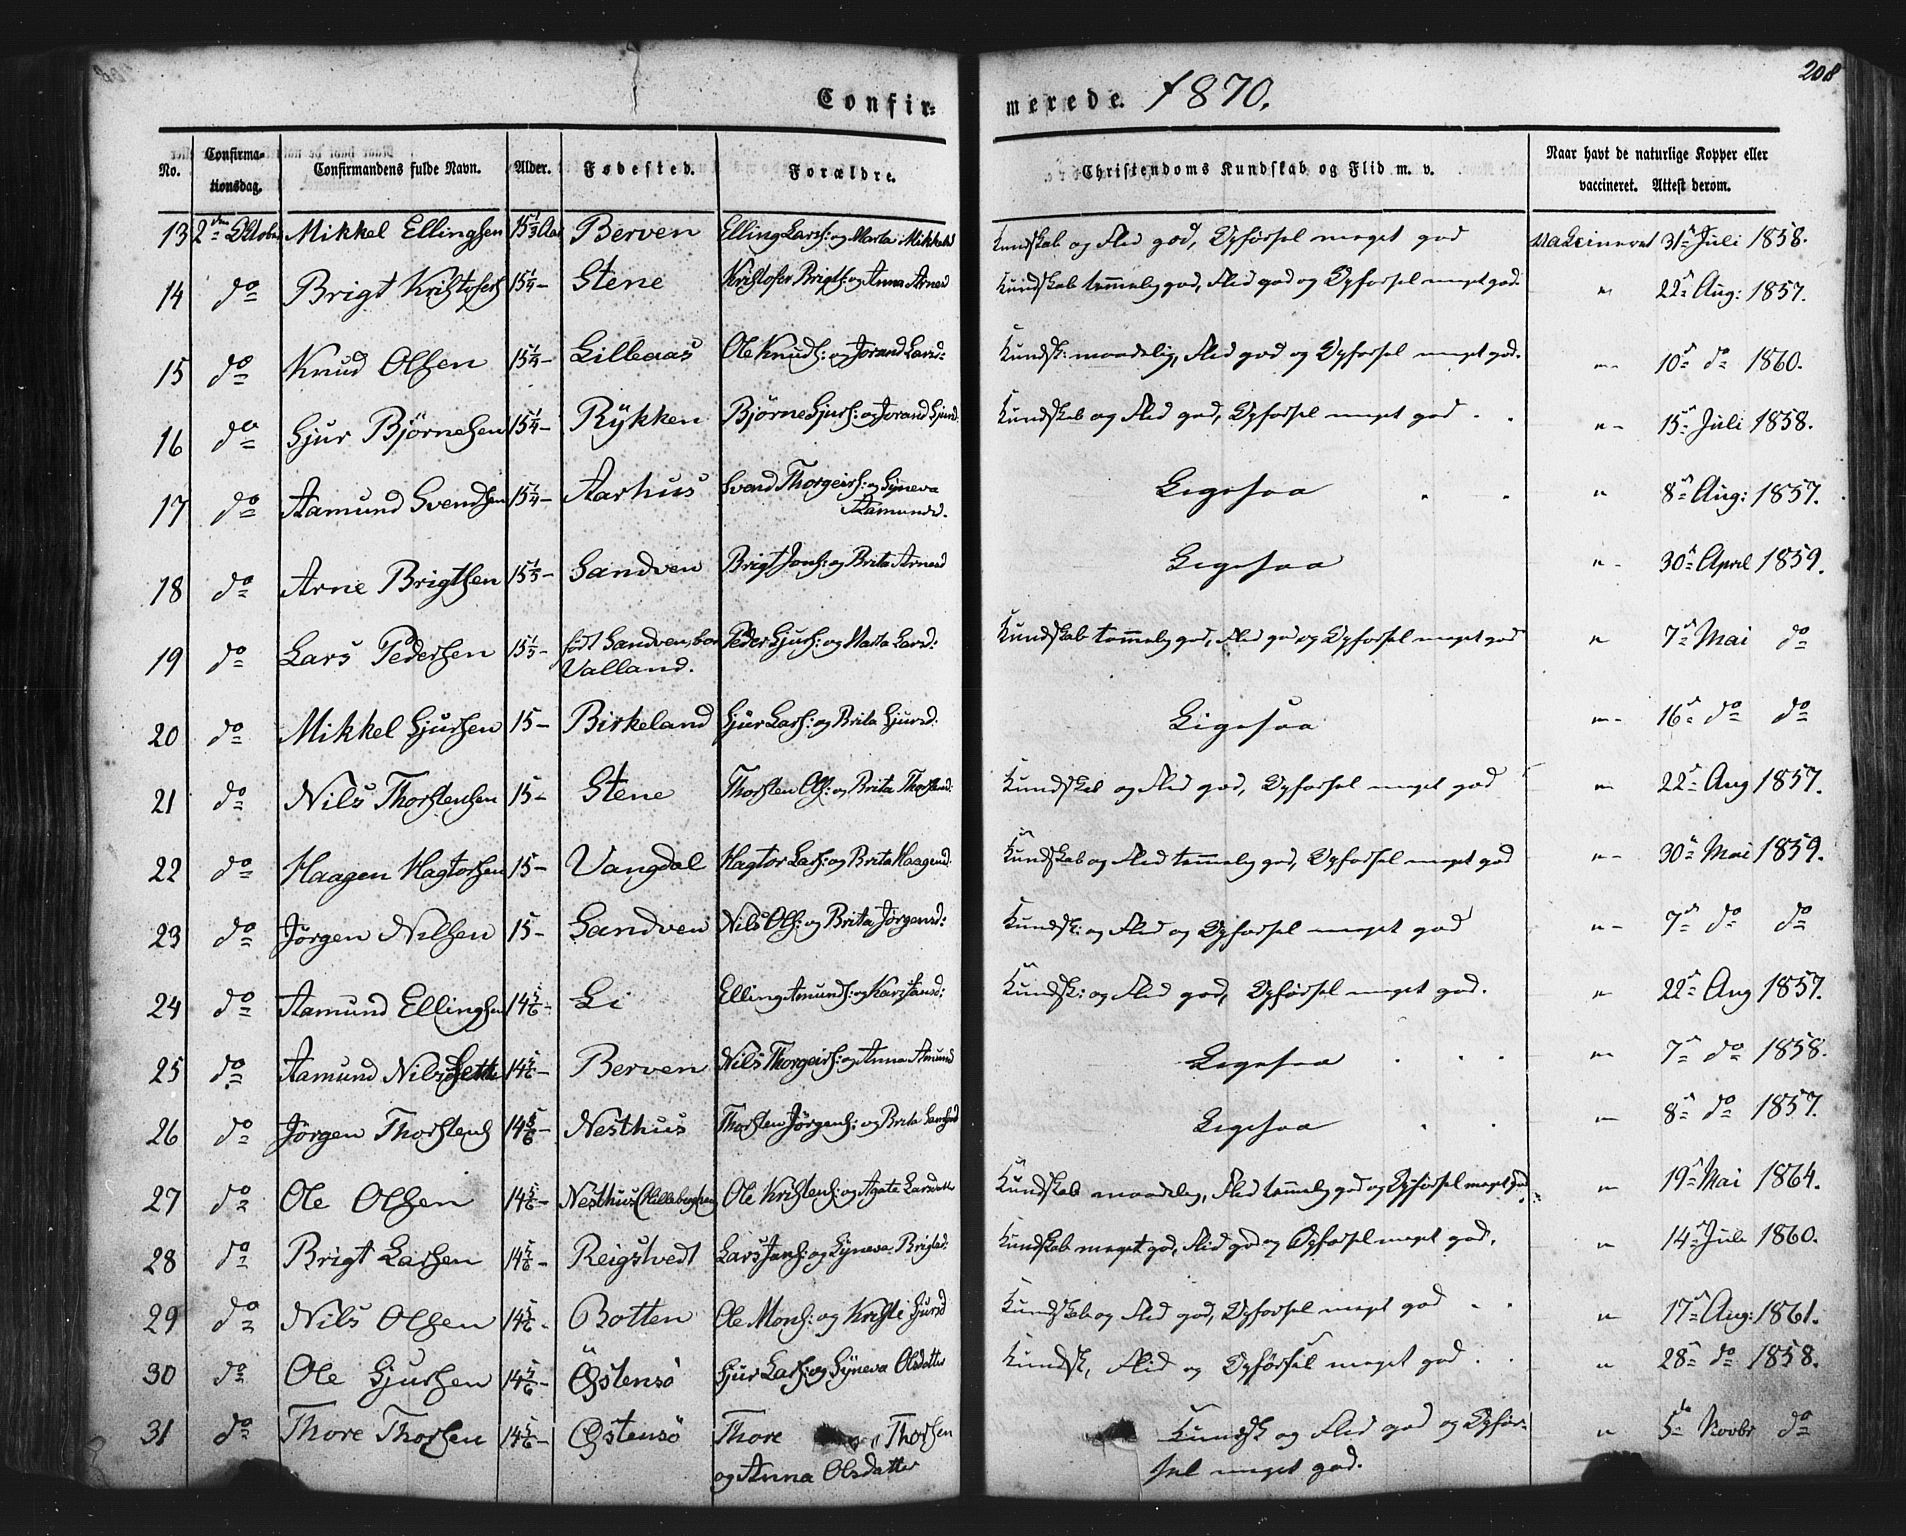 208
Confirmerede. 1870.
No. Confirmationsdag. Confirmandens fulde Navn. Alder. Fødested. Forældre. Christendoms Kundskab og Flid m. v. Naar havt de naturlige Kopper eller vaccineret. Attest derom.
13 2den Oktober Mikkel Ellingsen 15 1/3 Aar Berven Elling Lars: og Marta Mikkelsd Kundskab og Flid god, Opførsel meget god Vaccineret 31te Juli 1858.
14 do Brigt Kristofers 15 1/4 - Stene Kristofer Brigts: og Anna Arnesd Kundskab temmelig god, Flid god og Opførsel meget god. " 22de Aug: 1857.
15 do Knud Olsen 15 1/4 - Lillaas Ole Knuds: og Jorand Larsd: Kundsk: maadelig, Flid god og Opførsel meget god. " 10de do 1860.
16 do Sjur Björnesen 15 1/4 - Rykken Bjørne Sjurs: og Jorand Sjursd. Kundskab og Flid god, Opførsel meget god. " 15de Juli 1858.
17 do Aamund Svendsen 15 1/4 - Aarhus Svend Thorgeirs: og Syneva Aamundsd. Ligesaa " 8de Aug: 1857.
18 do Arne Brigtsen 15 1/3 - Sandven Brigt Jons: og Brita Arnesd Ligesaa " 30te April 1859.
19 do Lars Pedersen 15 1/3 - født Sandven, bor Valland. Peder Sjurs: og Marta Larsd: Kundskab temmelig god, Flid god og Opførsel meget god " 7de Mai do
20 do Mikkel Sjursen 15 - Birkeland Sjur Lars: og Brita Sjursd: Ligesaa " 16de do do
21 do Nils Thorstensen 15 - Stene Thorsten Ols: og Brita Thorstensd: Kundskab og Flid god, Opførsel meget god " 22de Aug 1857.
22 do Haagen Hagtorsen 15 - Vangdal Hagtor Lars: og Brita Haagensd. Kundskab og Flid temmelig god, Opførsel meget god " 30te Mai 1859.
23 do Jørgen Nilsen 15 - Sandven Nils Ols: og Brita Jørgensd: Kundsk: og Flid og Opførsel meget god " 7de do do
24 do Aamund Ellingsen 14 5/6 - Li Elling Amunds: og Kari Jansd: Kundsk: og Flid god, Opførsel meget god. " 22de Aug 1857.
25 do Aamund Nils 14 5/6 - Berven Nils Thorgeirs: og Anna Amund Ligesaa " 7de do 1858.
26 do Jørgen Thorstens 14 5/6 - Nesthus Thorsten Jørgens: og Brita Ligesaa " 8de do 1857.
27 do Ole Olsen 14 5/6 - Nesthus Ole Kristens: og Agata Larsdatter Kundskab maadelig, Flid temmelig god og Opførsel meget god " 19de Mai 1864.
28 do Brigt Larsen 14 5/6 - Reigstvedt Lars Jans: og Syneva Brigtsd: Kundskab meget god, Flid god og Opførsel meget god. " 14de Juli 1860.
29 do Nils Olsen 14 5/6 - Botten Ole Mons: og Kristi Sjursd Kundskab og Flid god, Opførsel meget god " 17de Aug: 1861.
30 do Ole Sjursen 14 5/6 - Østensø Sjur Lars: og Syneva Olsdatter Kundsk, Flid og Opførsel meget god. " 28de do 1858.
31 do Thore Thorsen 14 5/6 - Østensø Thore Thorsen og Anna Olsdatter Kundsk og Flid god og Opførsel meget god. " 5te Novbr do